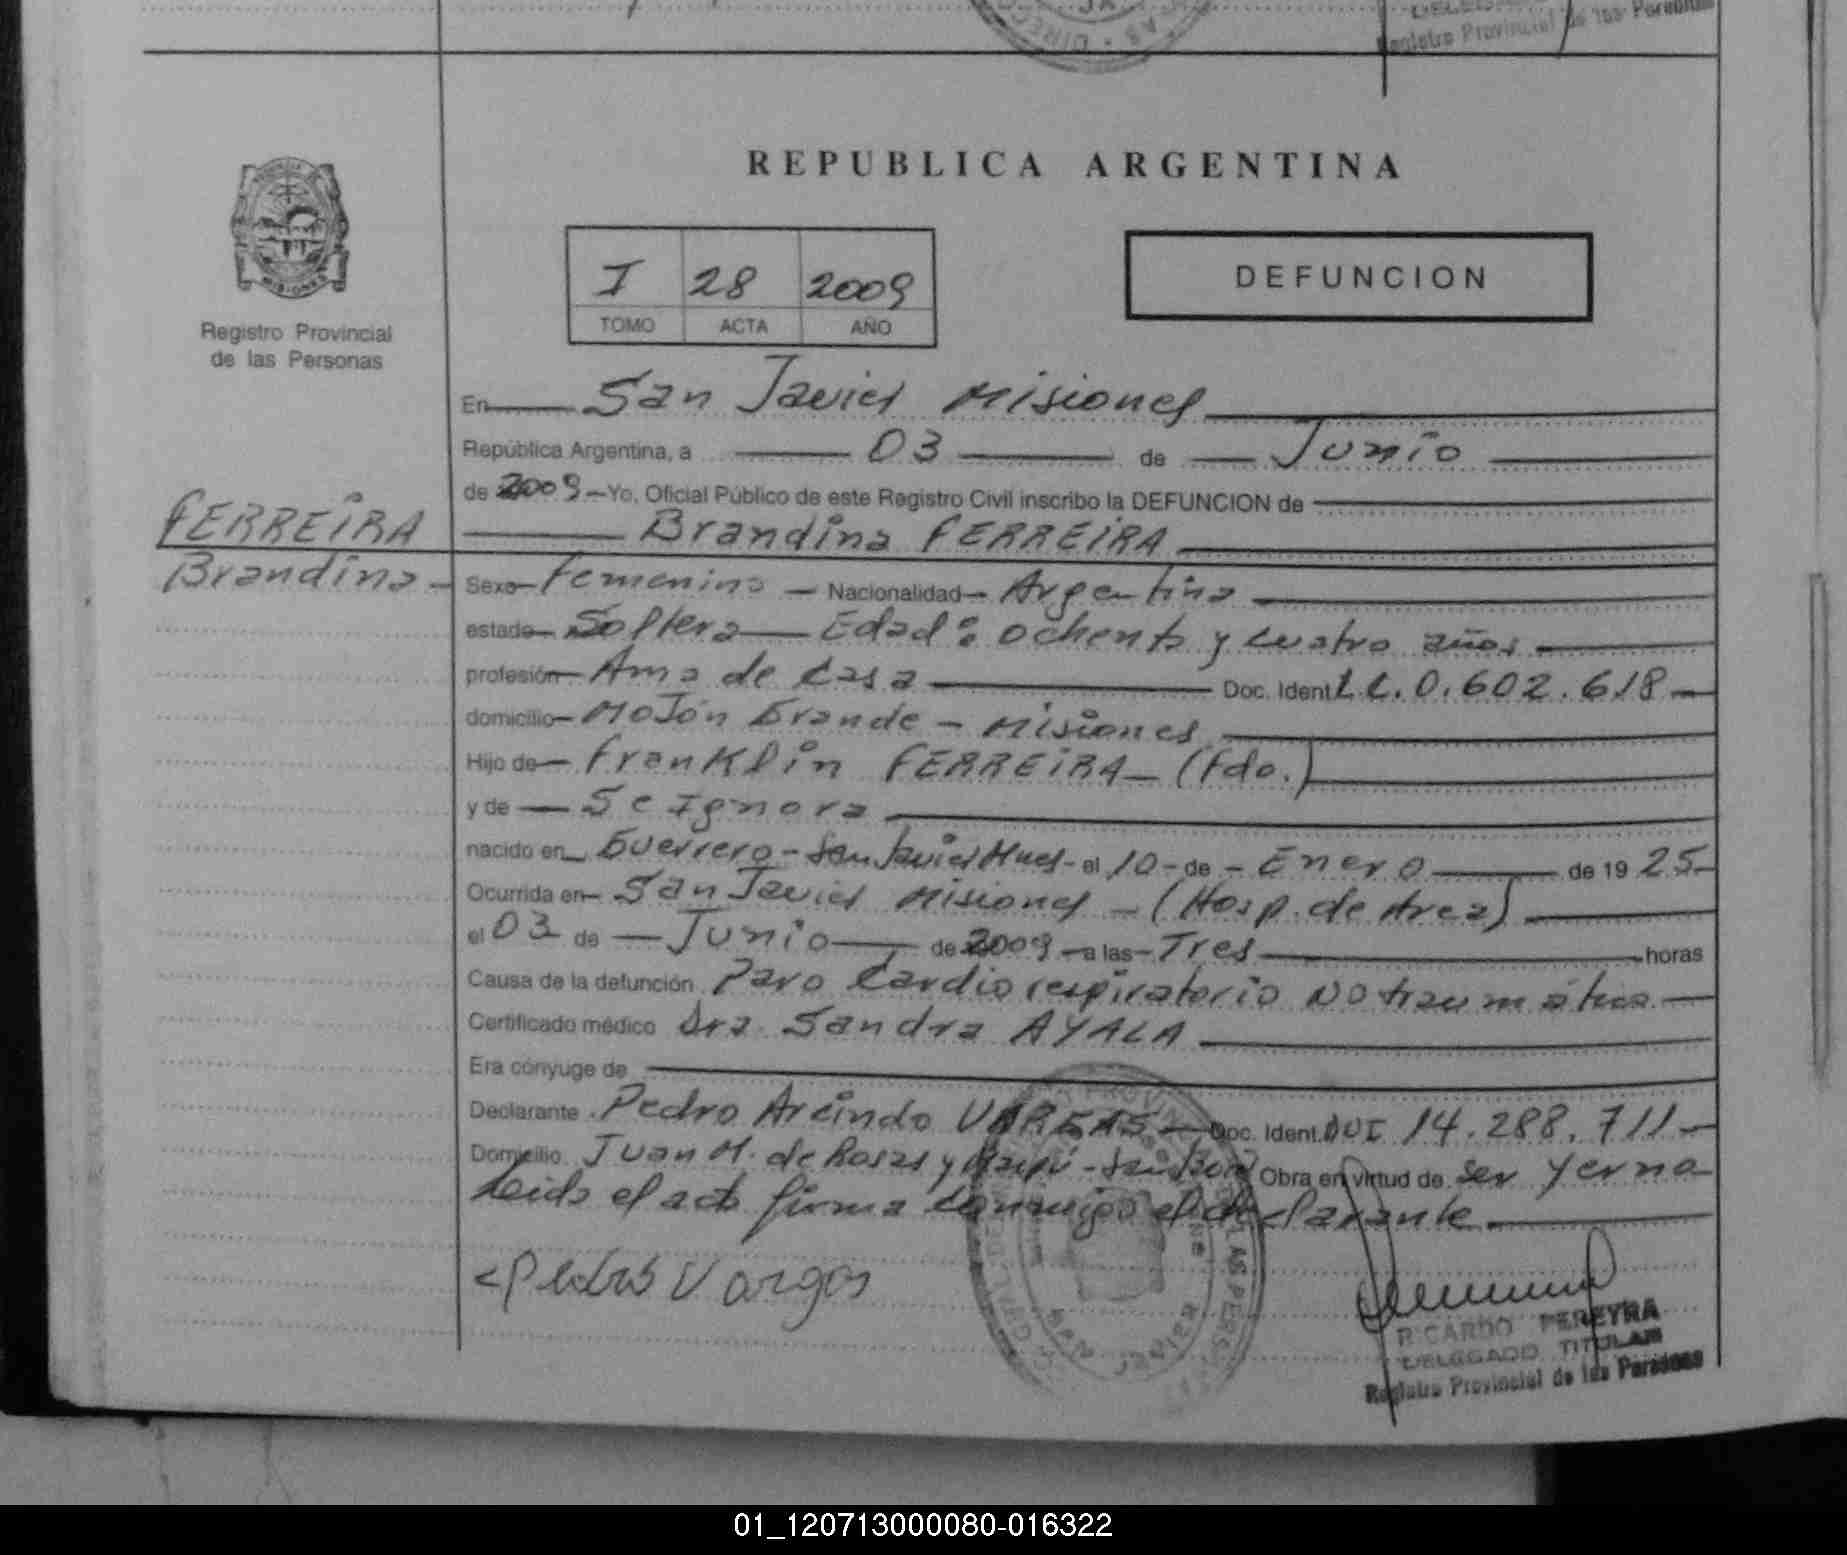 Registro Provincial de las Personas
REPUBLICA ARGENTINA
I 28 2009
TOMO ACTA AÑO
DEFUNCION
MISIONES
Registro Provincial
de las Personas
En San Javier Misiones
República Argentina, a 03 de Junio
de 2009 - Yo, Oficial Público de este Registro Civil inscribo la DEFUNCION de
FERREIRA
Brandina FERREIRA
Brandina
Sexo Femenino - Nacionalidad Argentina
estado Soltera Edad: ochenta y cuatro años
profesión Ama de Casa Doc. Ident. L.C. 0.602.618
domicilio Mojón Grande - Misiones
Hijo de Franklin FERREIRA (Fdo.)
y de Se Ignora
nacido en Guerrero - San Javier Mnes - el 10 - de - Enero de 19 25
Ocurrida en San Javier Misiones - (Hosp. de Area)
el 03 de Junio de 2009 a las Tres horas
Causa de la defunción Paro Cardio respiratorio No traumático
Certificado médico Dra. Sandra AYALA
Era cónyuge de
Declarante Pedro Arcindo VARGAS Doc. Ident. DNI 14.288.711
Domicilio Juan M. de Rosas y Maipú - San Javier Obra en virtud de ser yerno
Leida el acta firma conmigo el declarante
Pedro Vargas
RICARDO PEREYRA
DELEGADO TITULAR
Registro Provincial de las Personas
01_120713000080-016322